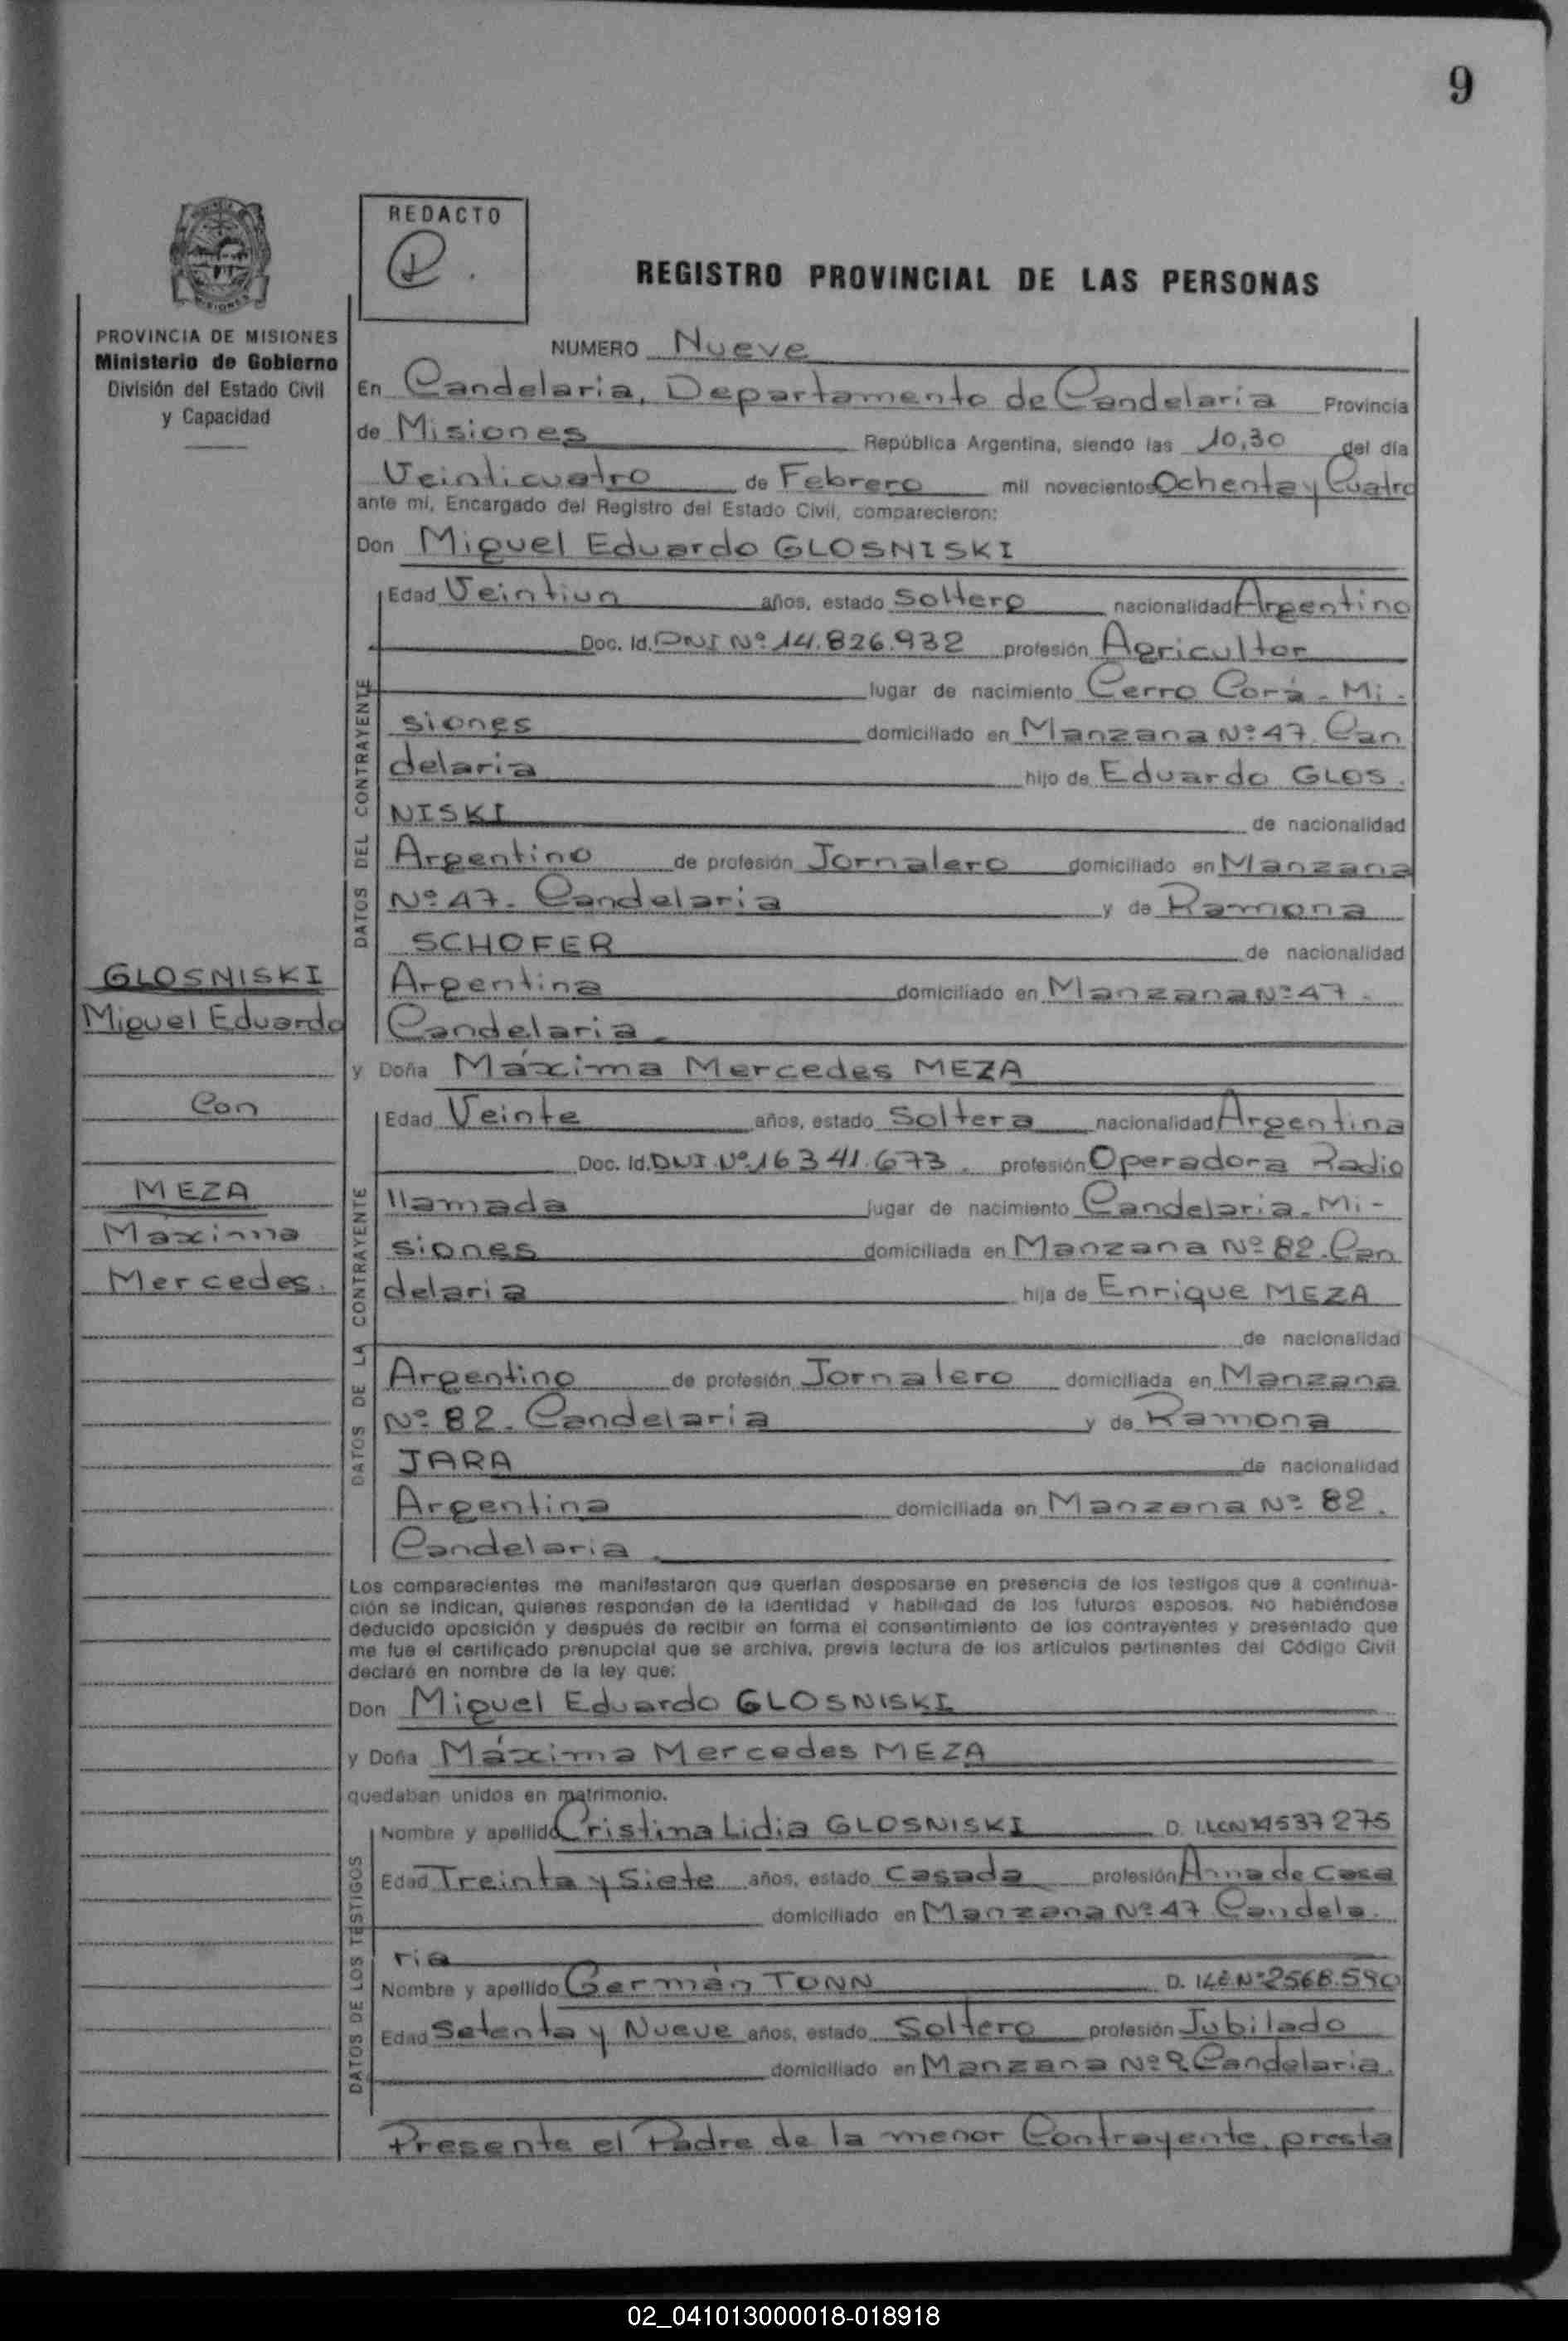 9
REDACTO
REGISTRO PROVINCIAL DE LAS PERSONAS
PROVINCIA DE MISIONES
Ministerio de Gobierno
División del Estado Civil
y Capacidad
NUMERO Nueve
En Candelaria, Departamento de Candelaria Provincia
de Misiones República Argentina, siendo las 10,30 del día
Veinticuatro de Febrero mil novecientos Ochenta y Cuatro
ante mí, Encargado del Registro del Estado Civil, comparecieron:
Don Miguel Eduardo GLOSNISKI
DATOS DEL CONTRAYENTE
Edad Veintiun años, estado Soltero nacionalidad Argentino
Doc. Id. DNI Nº 14.826.932 profesión Agricultor
lugar de nacimiento Cerro Corá - Mi-
siones domiciliado en Manzana Nº 47. Can
delaria hijo de Eduardo GLOS-
NISKI de nacionalidad
Argentino de profesión Jornalero domiciliado en Manzana
Nº 47. Candelaria y de Ramona
SCHOFER de nacionalidad
Argentina domiciliado en Manzana Nº 47.
Candelaria.
GLOSNISKI
Miguel Eduardo
Con
MEZA
Máxima
Mercedes.
y Doña Máxima Mercedes MEZA
DATOS DE LA CONTRAYENTE
Edad Veinte años, estado Soltera nacionalidad Argentina
Doc. Id. DNI. Nº 16341.673. profesión Operadora Radio
llamada lugar de nacimiento Candelaria. Mi-
siones domiciliada en Manzana Nº 82. Can
delaria hija de Enrique MEZA
de nacionalidad
Argentino de profesión Jornalero domiciliada en Manzana
Nº 82. Candelaria y de Ramona
JARA de nacionalidad
Argentina domiciliada en Manzana Nº 82.
Candelaria.
Los comparecientes me manifestaron que querían desposarse en presencia de los testigos que a continua-
ción se indican, quienes responden de la identidad y habilidad de los futuros esposos. No habiéndose
deducido oposición y después de recibir en forma el consentimiento de los contrayentes y presentado que
me fue el certificado prenupcial que se archiva, previa lectura de los artículos pertinentes del Código Civil
declaré en nombre de la ley que:
Don Miguel Eduardo GLOSNISKI
y Doña Máxima Mercedes MEZA
quedaban unidos en matrimonio.
DATOS DE LOS TESTIGOS
Nombre y apellido Cristina Lidia GLOSNISKI D. I.
Edad Treinta y Siete años, estado Casada profesión Ama de Casa
domiciliado en Manzana Nº 47 Candela-
ria
Nombre y apellido Germán TONN D. I.
Edad Setenta y Nueve años, estado Soltero profesión Jubilado
domiciliado en Manzana Nº Candelaria.
Presente el Padre de la menor Contrayente, presta
02_041013000018-018918